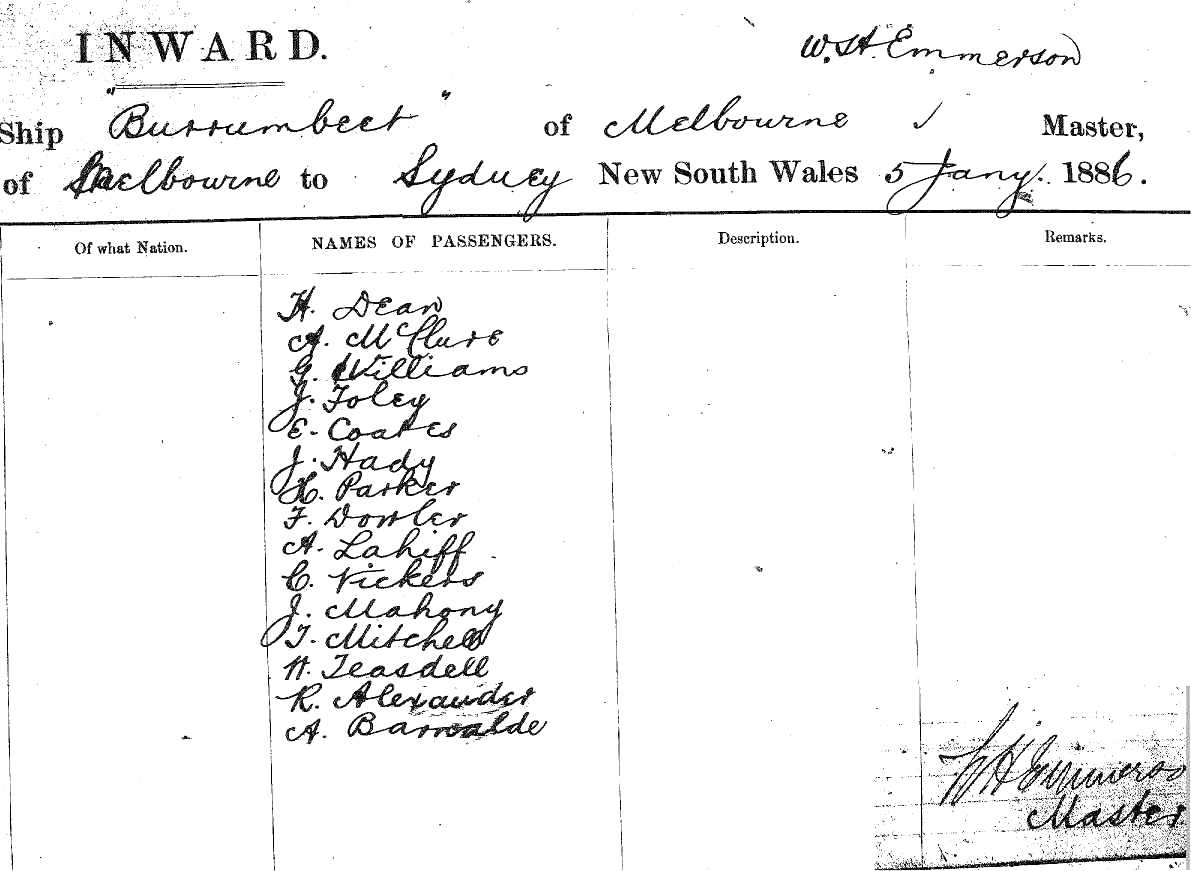 INWARD.
W. H. Emmerson
Ship "Burrumbeet" of Melbourne ✓ Master,
of Melbourne to Sydney New South Wales 5 Jany. 1886.
Of what Nation. NAMES OF PASSENGERS. Description. Remarks.
H. Dean
A. McClure
G. Williams
J. Foley
E. Coates
J. Hady
H. Parker
F. Dowler
A. Lahiff
C. Vickers
J. Mahony
T. Mitchell
H. Teasdell
R. Alexander
A.
W H Emmerson
Master